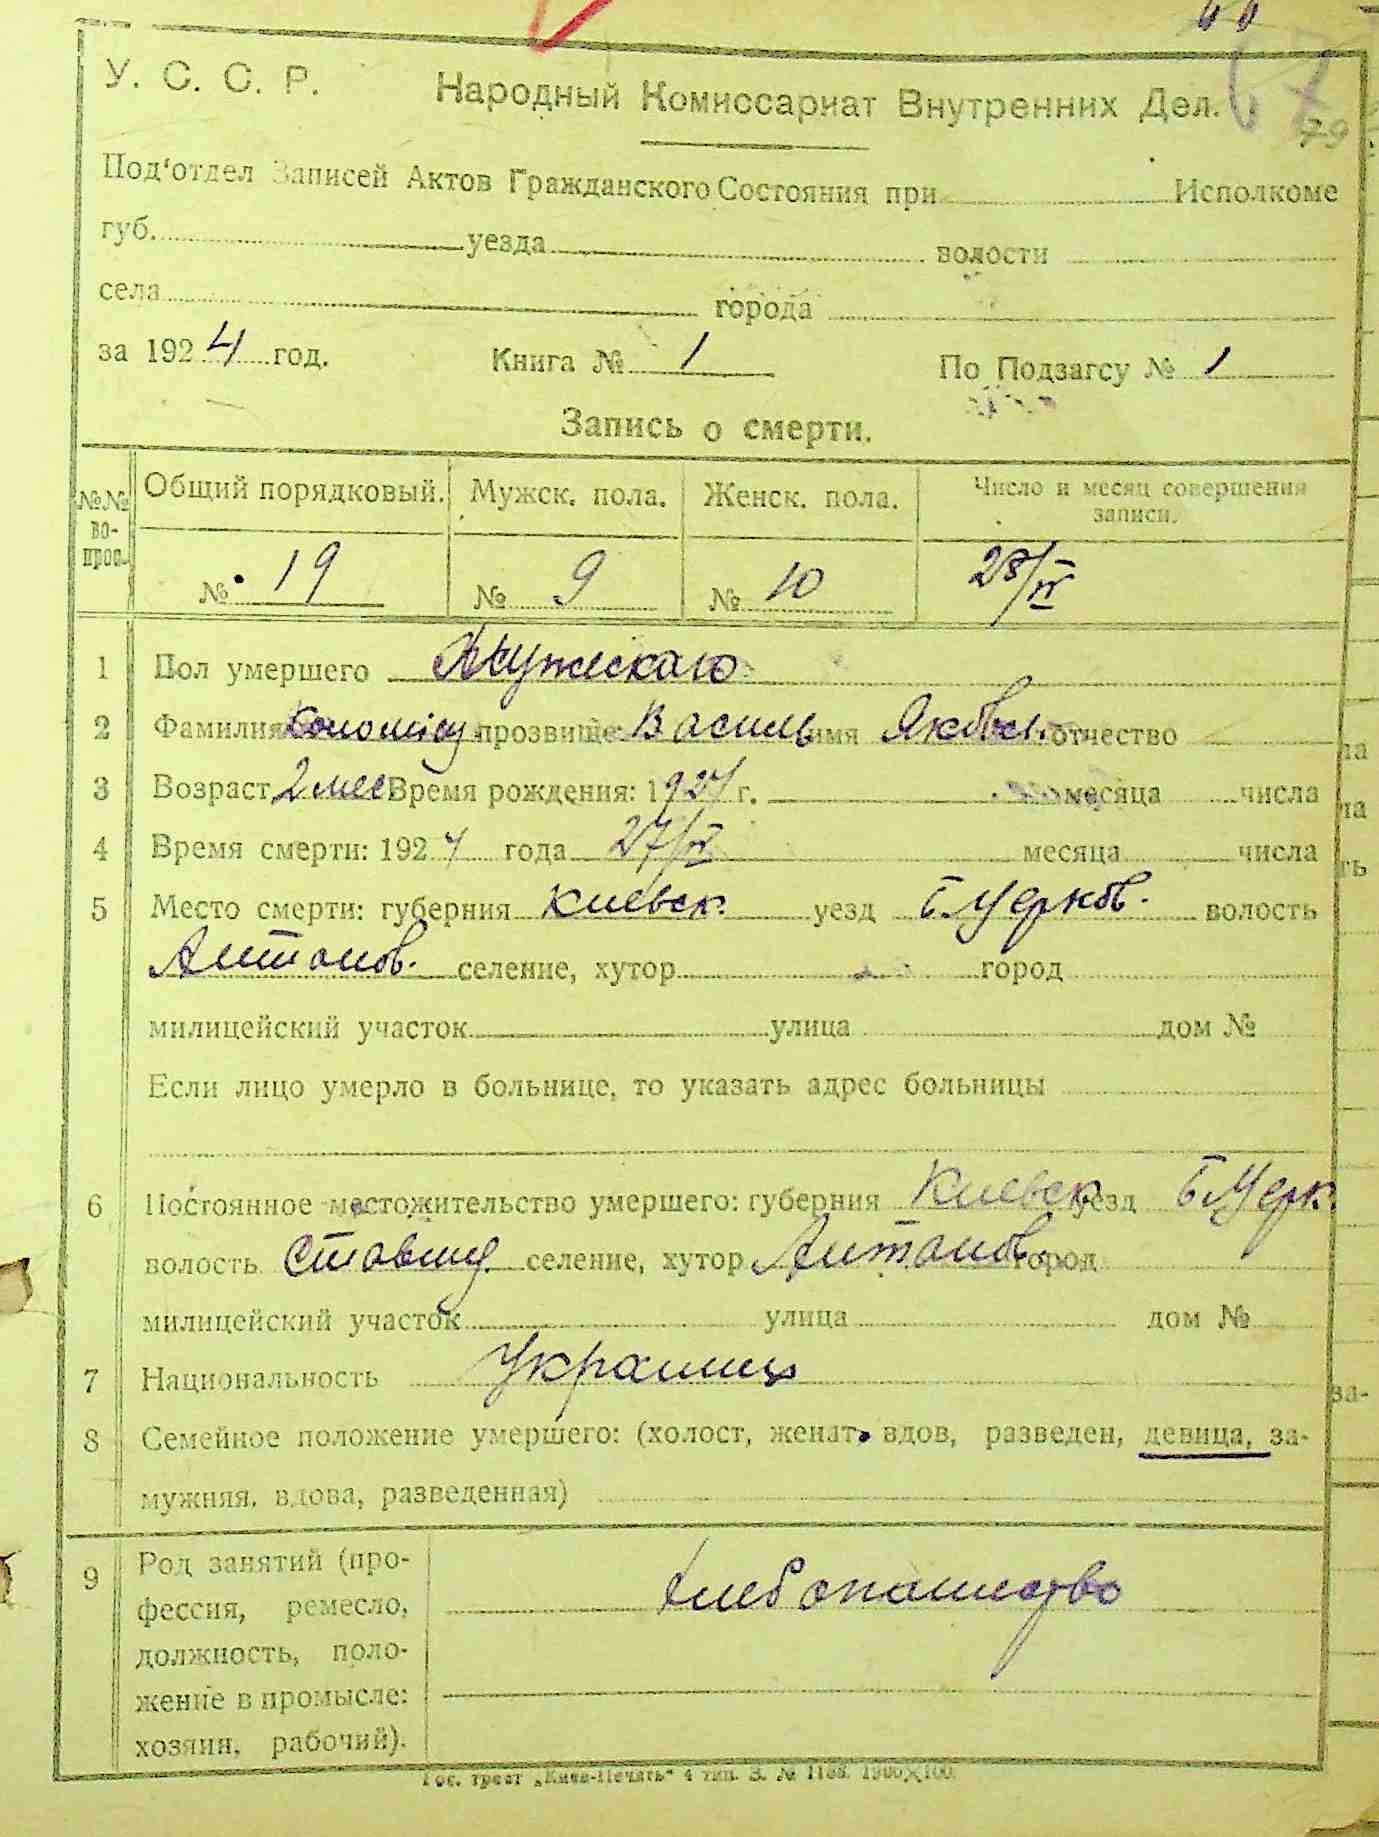 67
79
У. С. С. Р. Народный Комиссариат Внутренних Дел.
Под‘отдел Записей Актов Гражданского Состояния при Исполкоме
губ. уезда волости
села города
за 1924 год. Книга № 1 По Подзагсу № 1
Запись о смерти.
№№ во-прос. Общий порядковый. Мужск. пола. Женск. пола. Число и месяц совершения записи.
№ 19 № 9 № 10 28/IV
1 Пол умершего Мужескаго
2 Фамилия прозвище Василь имя Яковл. отчество
3 Возраст 2 мес Время рождения: 1924 г. месяца числа
4 Время смерти: 1924 года 27/IV месяца числа
5 Место смерти: губерния Киевск. уезд Б Церков. волость
Антонов. селение, хутор город
милицейский участок улица дом №
Если лицо умерло в больнице, то указать адрес больницы
6 Постоянное местожительство умершего: губерния Киевск уезд Б Церк.
волость Ставищ. селение, хутор Антонов. город
милицейский участок улица дом №
7 Национальность Украинц
8 Семейное положение умершего: (холост, женат, вдов, разведен, девица, за-
мужняя, вдова, разведенная)
9 Род занятий (про-
фессия, ремесло, хлебопашество
должность, поло-
жение в промысле:
хозяин, рабочий).
Гос. трест „Киев-Печать“ 4 тип. З. №